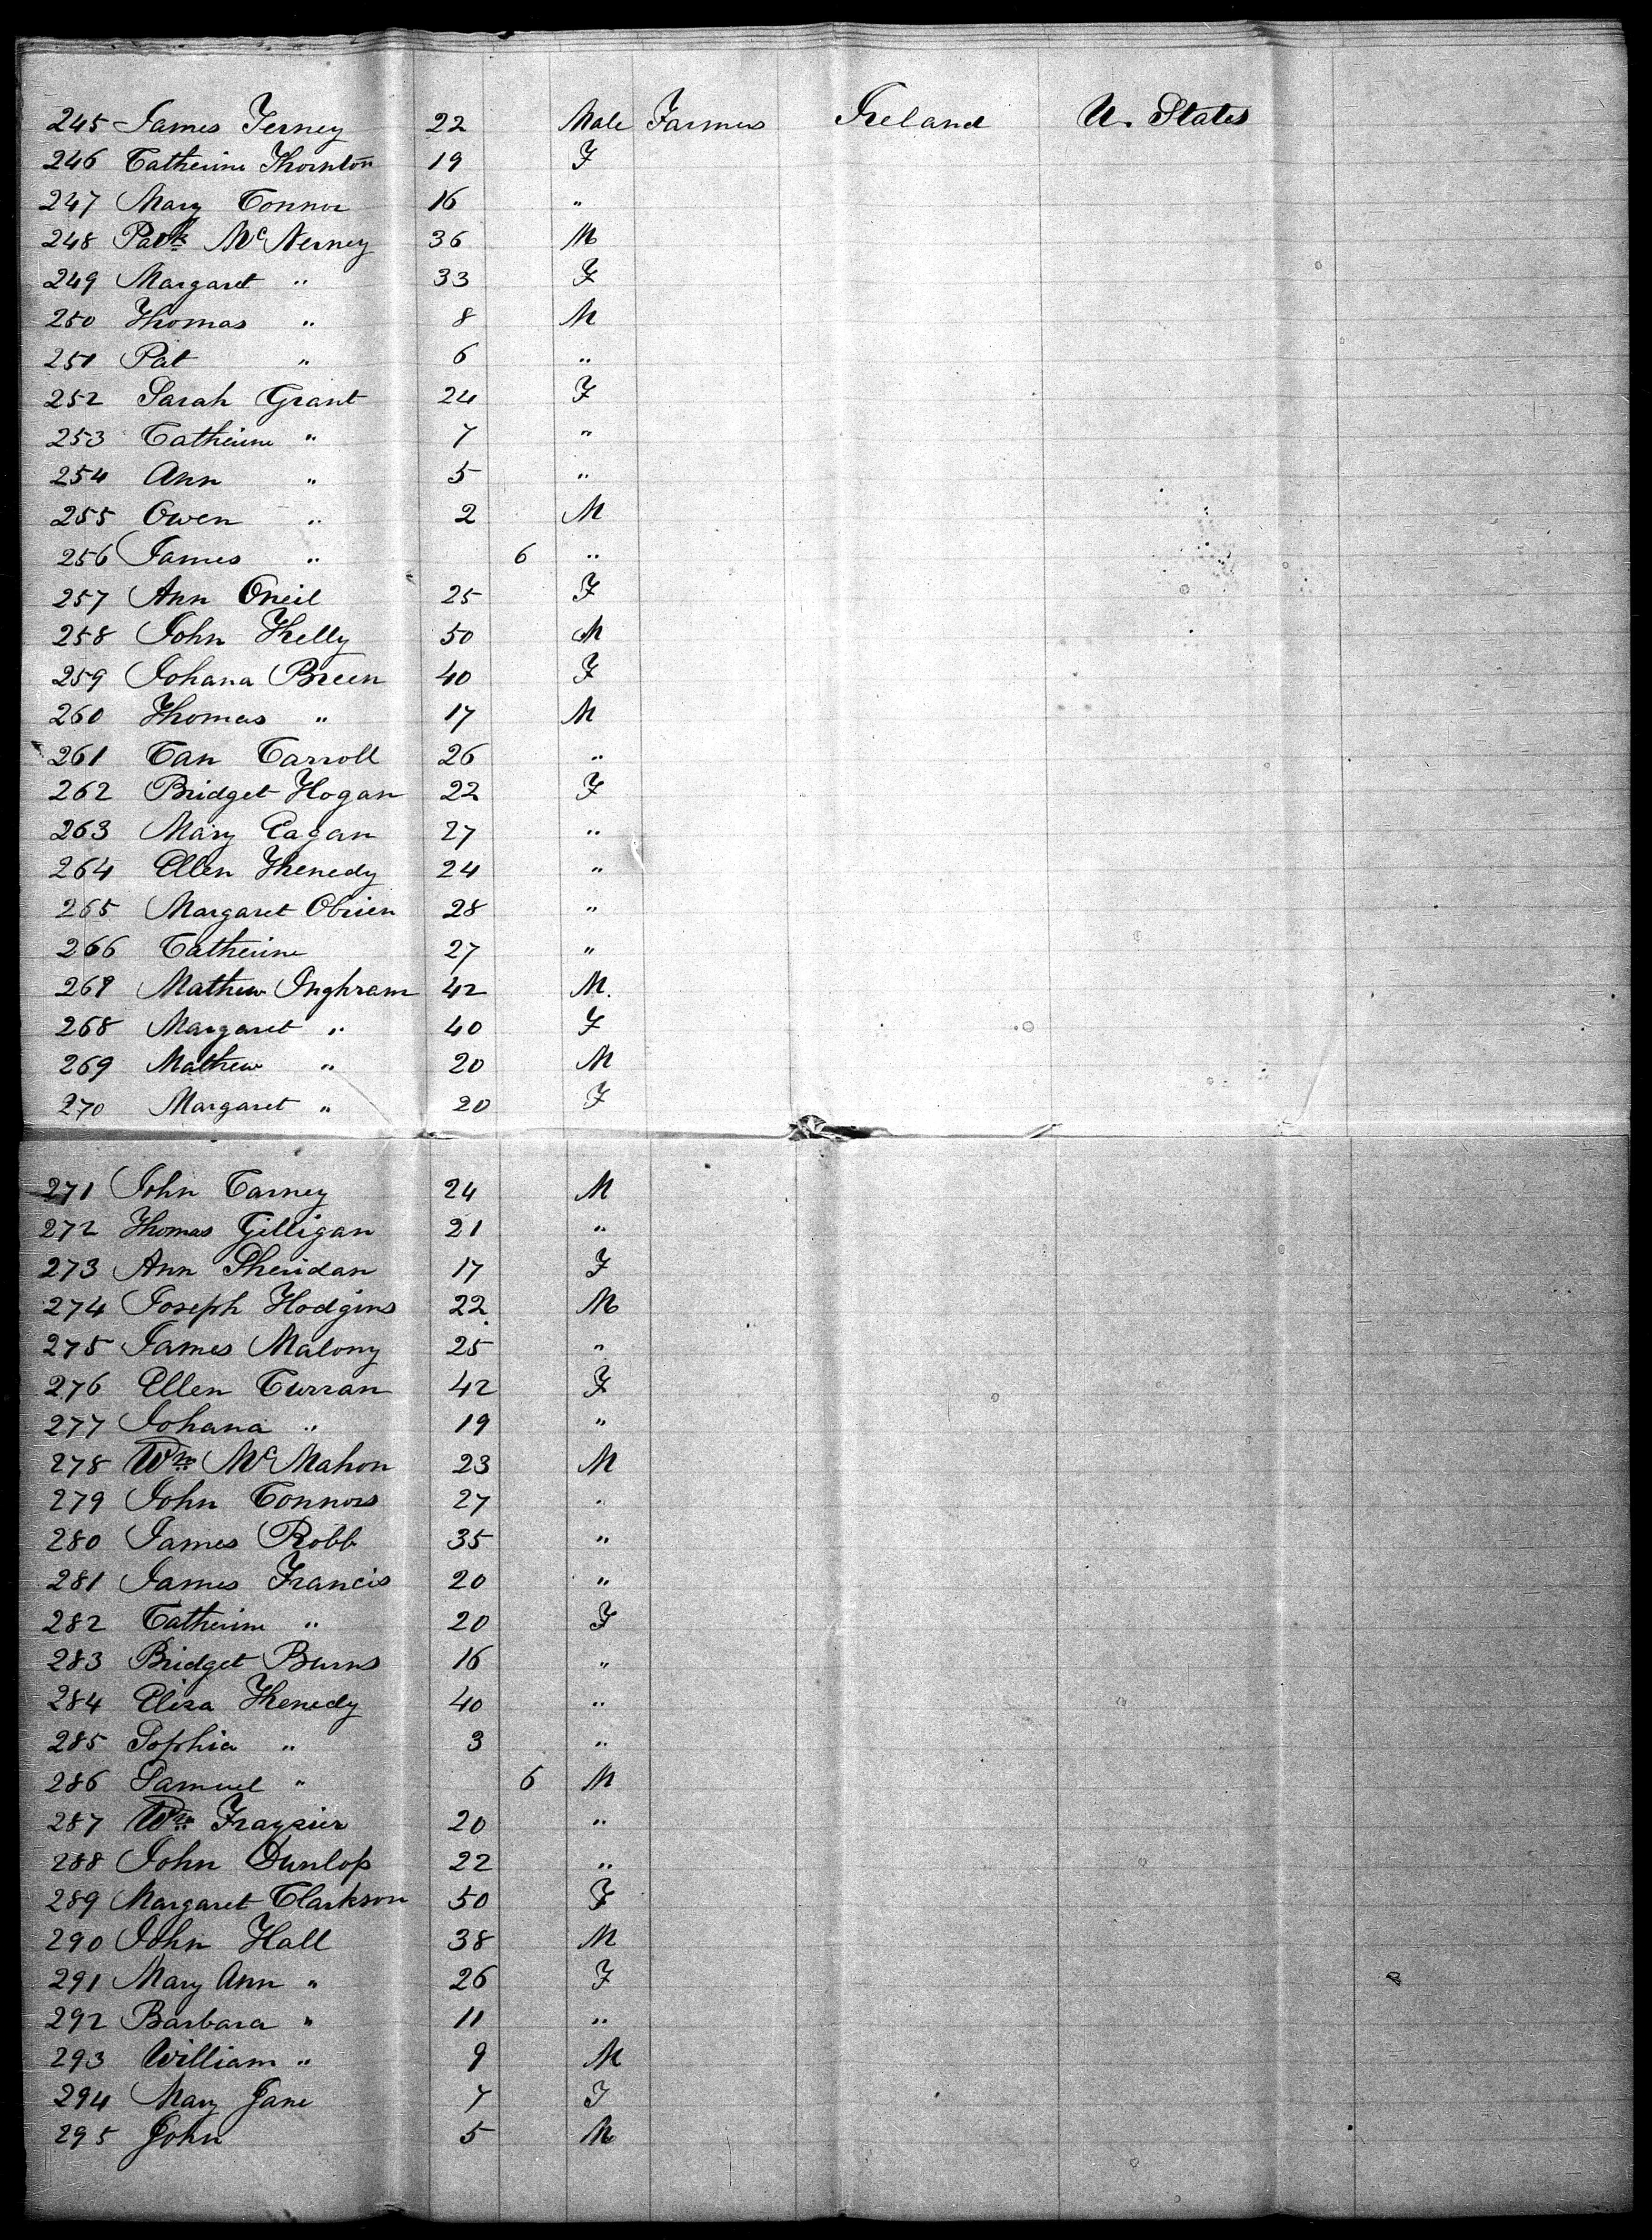 245 James Terney 22 Male Farmers Ireland U. States
246 Catherine Thornton 19 F
247 Mary Connor 16 "
248 Patk McNerney 36 M
249 Margaret " 33 F
250 Thomas " 8 M
251 Pat " 6 "
252 Sarah Grant 24 F
253 Catherine " 7 "
254 Ann " 5 "
255 Owen " 2 M
256 James " 6 "
257 Ann Oneil 25 F
258 John Kelly 50 M
259 Johana Breen 40 F
260 Thomas " 17 M
261 Can Carroll 26 "
262 Bridget Hogan 22 F
263 Mary Eagan 27 "
264 Ellen Kenedy 24 "
265 Margaret Obrien 28 "
266 Catherine 27 "
267 Mathew Inghram 42 M.
268 Margaret " 40 F
269 Mathew " 20 M
270 Margaret " 20 F
271 John Carney 24 M
272 Thomas Gilligan 21 "
273 Ann Sheridan 17 F
274 Joseph Hodgins 22 M
275 James Malony 25 "
276 Ellen Curran 42 F
277 Johana " 19 "
278 Wm McMahon 23 M
279 John Connors 27 "
280 James Robb 35 "
281 James Francis 20 "
282 Catherine " 20 F
283 Bridget Burns 16 "
284 Eliza Kenedy 40 "
285 Sophia " 3 "
286 Samuel " 6 M
287 Wm Frazier 20 "
288 John Dunlop 22 "
289 Margaret Clarkson 50 F
290 John Hall 38 M
291 Mary Ann " 26 F
292 Barbara " 11 "
293 William " 9 M
294 Mary Jane 7 F
295 John 5 M